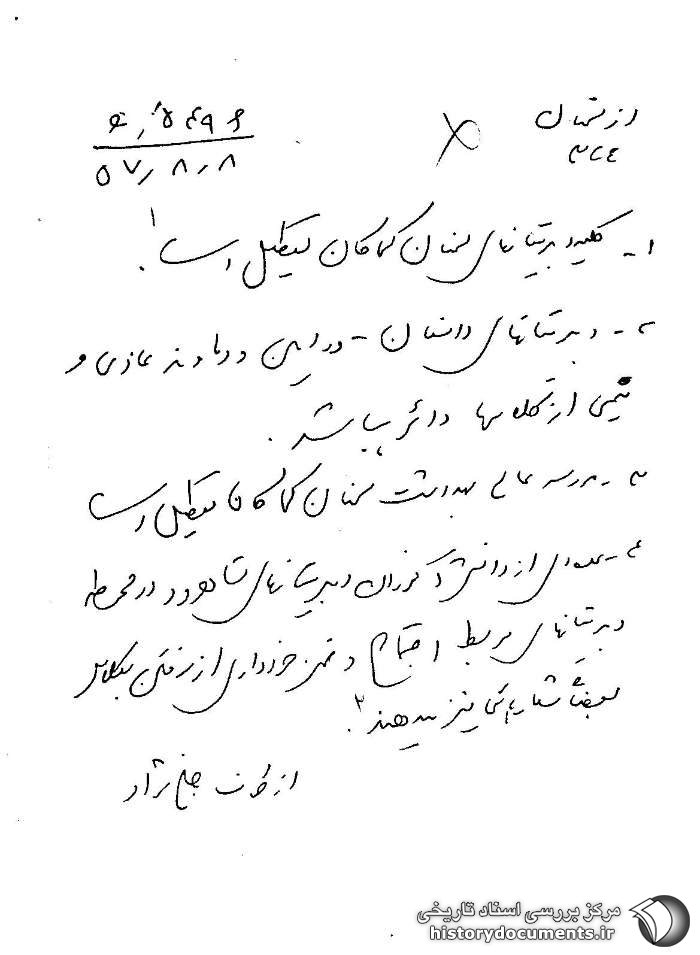 از سمنان
۳۸۴
۵۴۹۶/ه
۵۷/۸/۸
۱- کلیه دبیرستانهای سمنان کماکان تعطیل است.۱
۲- دبیرستانهای دامغان - و و دماوند عادی و
نیمی از کلاسها دائر میباشد.
۳- مدرسه عالی بهداشت سمنان کماکان تعطیل است
۴- عده‌ای از دانش‌آموزان دبیرستانهای شاهرود در محوطه
دبیرستانهای مربوط اجتماع و ضمن خودداری از رفتن بکلاس
بعضاً شعارهائی نیز میدهند.۲
از طرف
مرکز بررسی اسناد تاریخی
historydocuments.ir